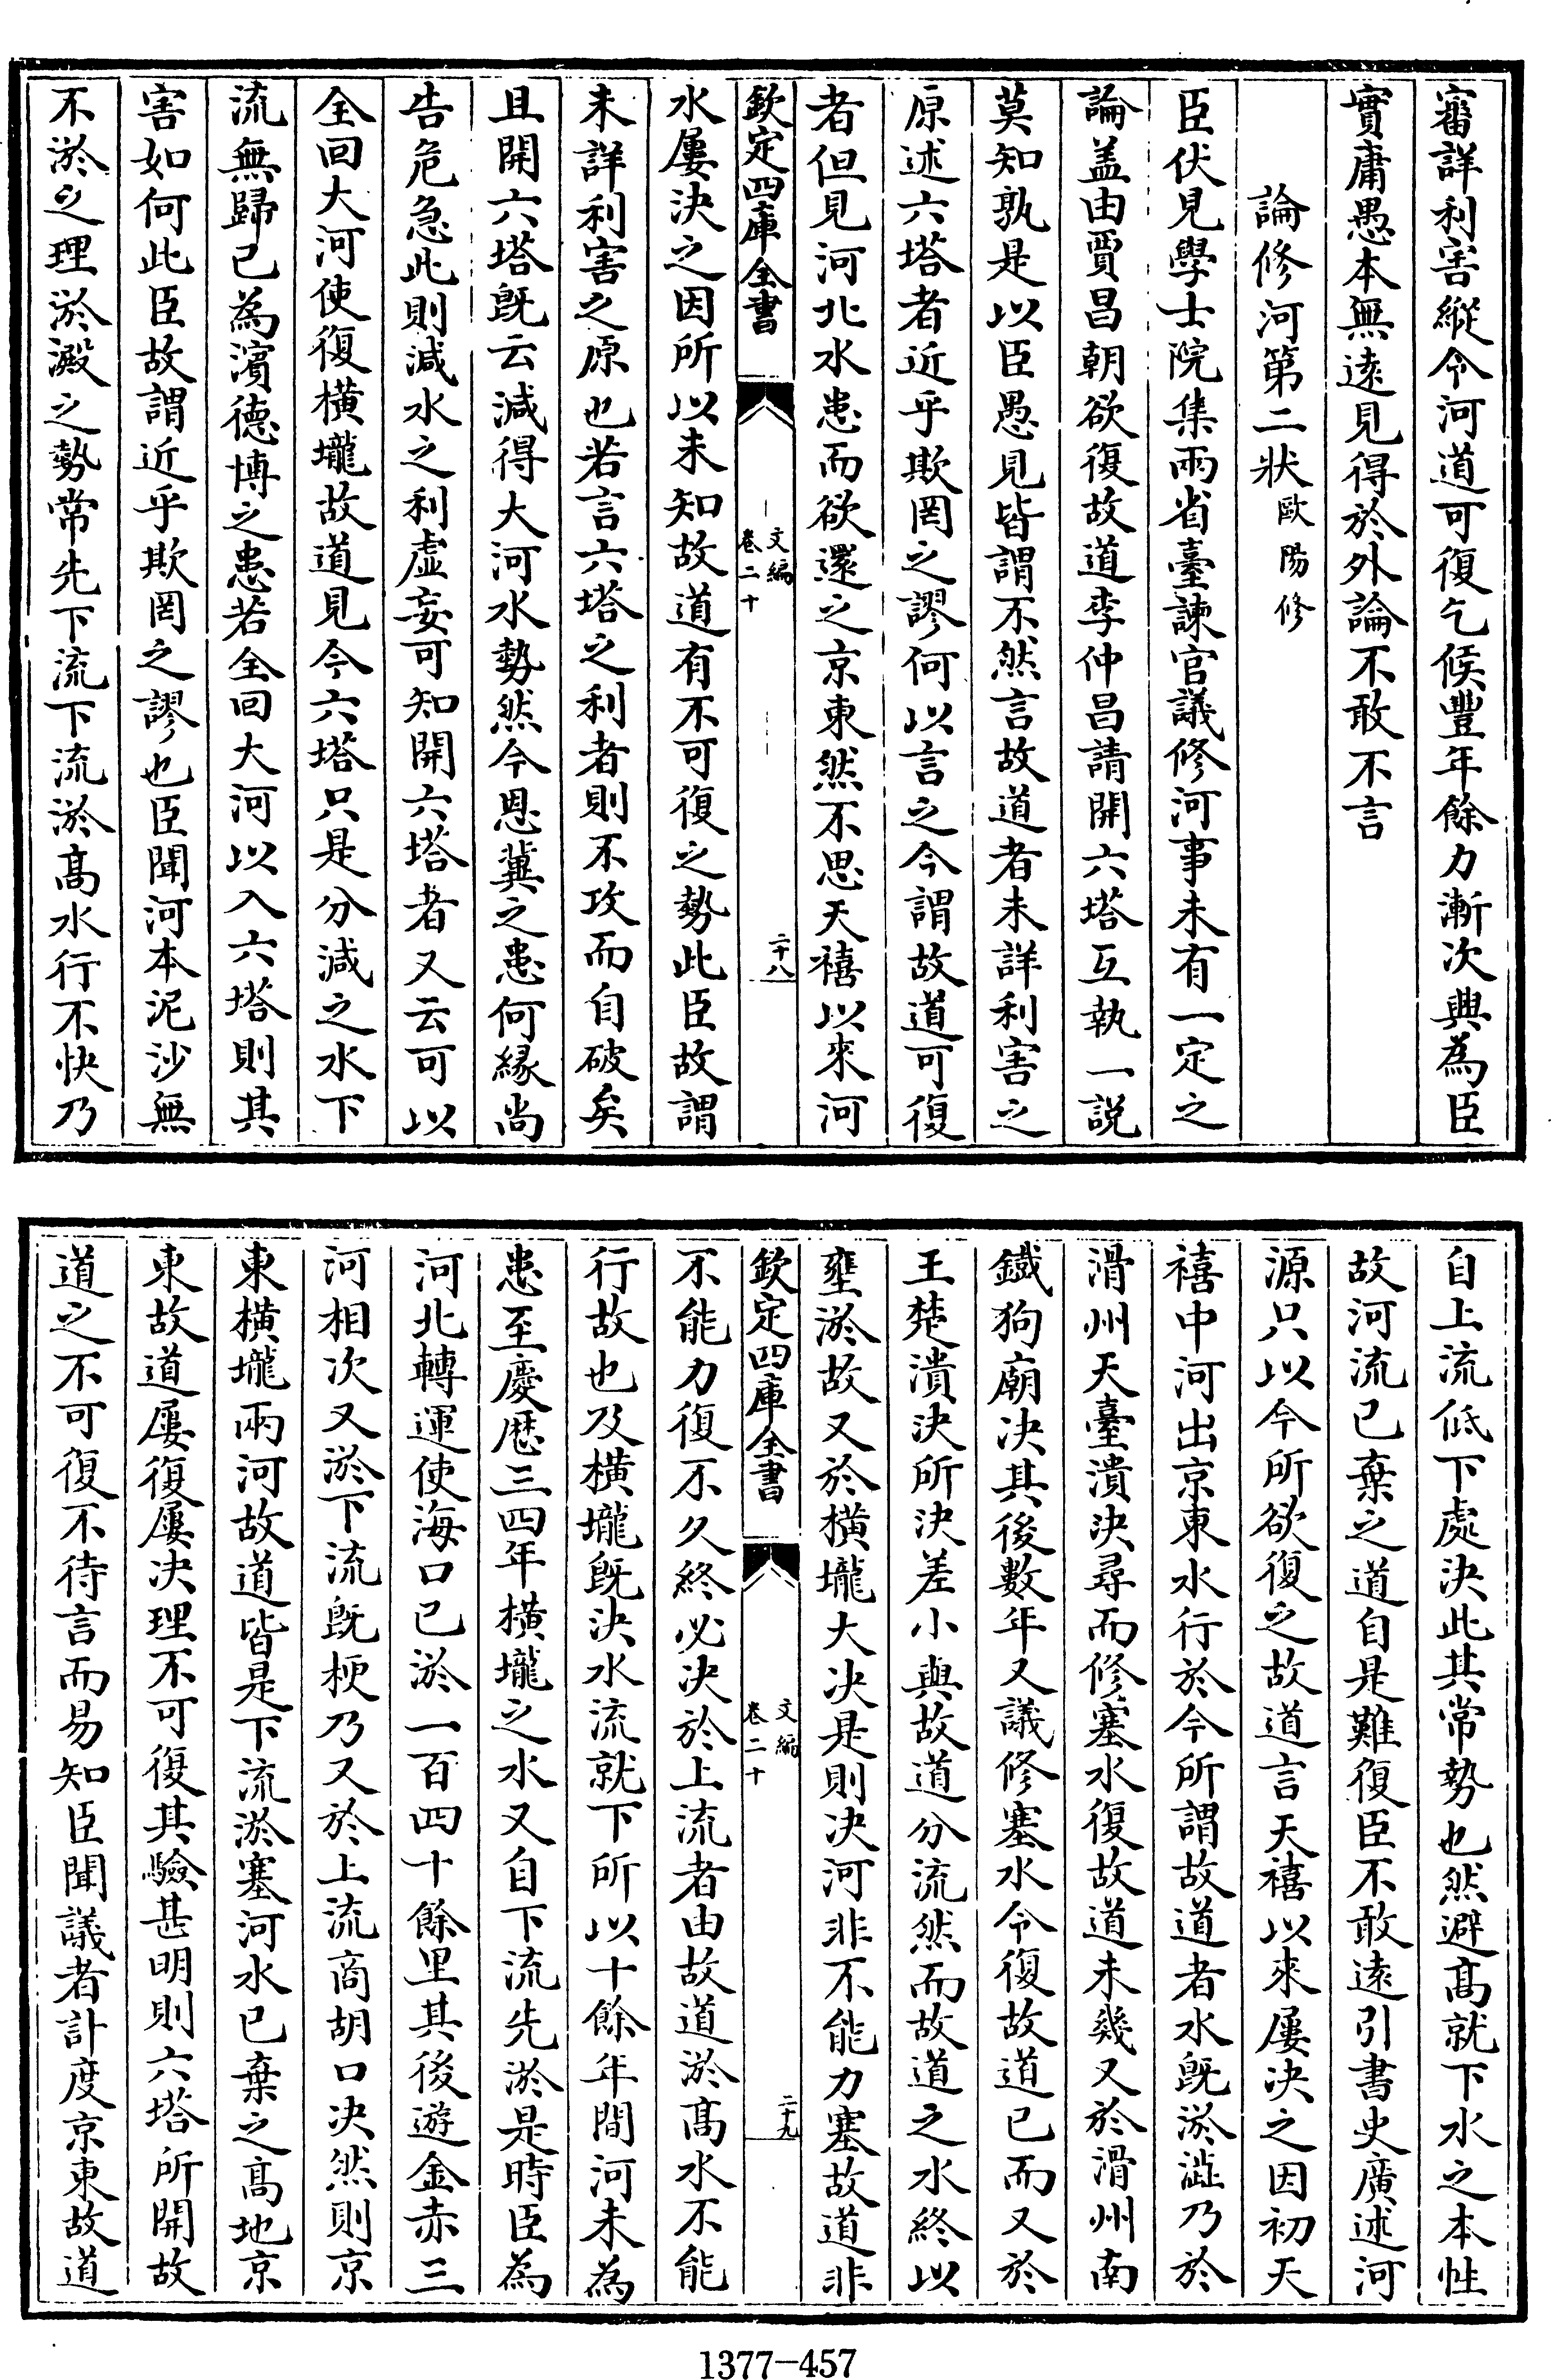 審詳利害縱令河道可復乞候豐年餘力漸次興為臣
實庸愚本無遠見得於外論不敢不言
論修河第二狀歐陽修
臣伏見學士院集兩省臺諫官議修河事未有一定之
論盖由賈昌朝欲復故道李仲昌請開六塔互執一說
莫知孰是以臣愚見皆謂不然言故道者未詳利害之
原述六塔者近乎欺罔之謬何以言之今謂故道可復
者但見河北水患而欲還之京東然不思天禧以來河
欽定四庫全書
文編
卷二十
二十八
水屢決之因所以未知故道有不可復之勢此臣故謂
未詳利害之原也若言六塔之利者則不攻而自破矣
且開六塔既云減得大河水勢然今恩冀之患何緣尚
告危急此則減水之利虛妄可知開六塔者又云可以
全回大河使復橫壠故道見今六塔只是分減之水下
流無歸已為濱德博之患若全回大河以入六塔則其
害如何此臣故謂近乎欺罔之謬也臣聞河本泥沙無
不淤之理淤澱之勢常先下流下流淤髙水行不快乃
自上流低下處決此其常勢也然避髙就下水之本性
故河流已棄之道自是難復臣不敢遠引書史廣述河
源只以今所欲復之故道言天禧以來屢決之因初天
禧中河出京東水行於今所謂故道者水既淤澁乃於
滑州天臺潰決尋而修塞水復故道未幾又於滑州南
鐵狗廟決其後數年又議修塞水令復故道已而又於
王楚潰決所決差小與故道分流然而故道之水終以
壅淤故又於橫壠大決是則決河非不能力塞故道非
欽定四庫全書
文編
卷二十
二十九
不能力復不久終必決於上流者由故道淤髙水不能
行故也及橫壠既決水流就下所以十餘年間河未為
患至慶厯三四年橫壠之水又自下流先淤是時臣為
河北轉運使海口已淤一百四十餘里其後遊金赤三
河相次又淤下流既梗乃又於上流商胡口決然則京
東橫壠兩河故道皆是下流淤塞河水已棄之髙地京
東故道屢復屢決理不可復其驗甚明則六塔所開故
道之不可復不待言而易知臣聞議者計度京東故道
1377-457